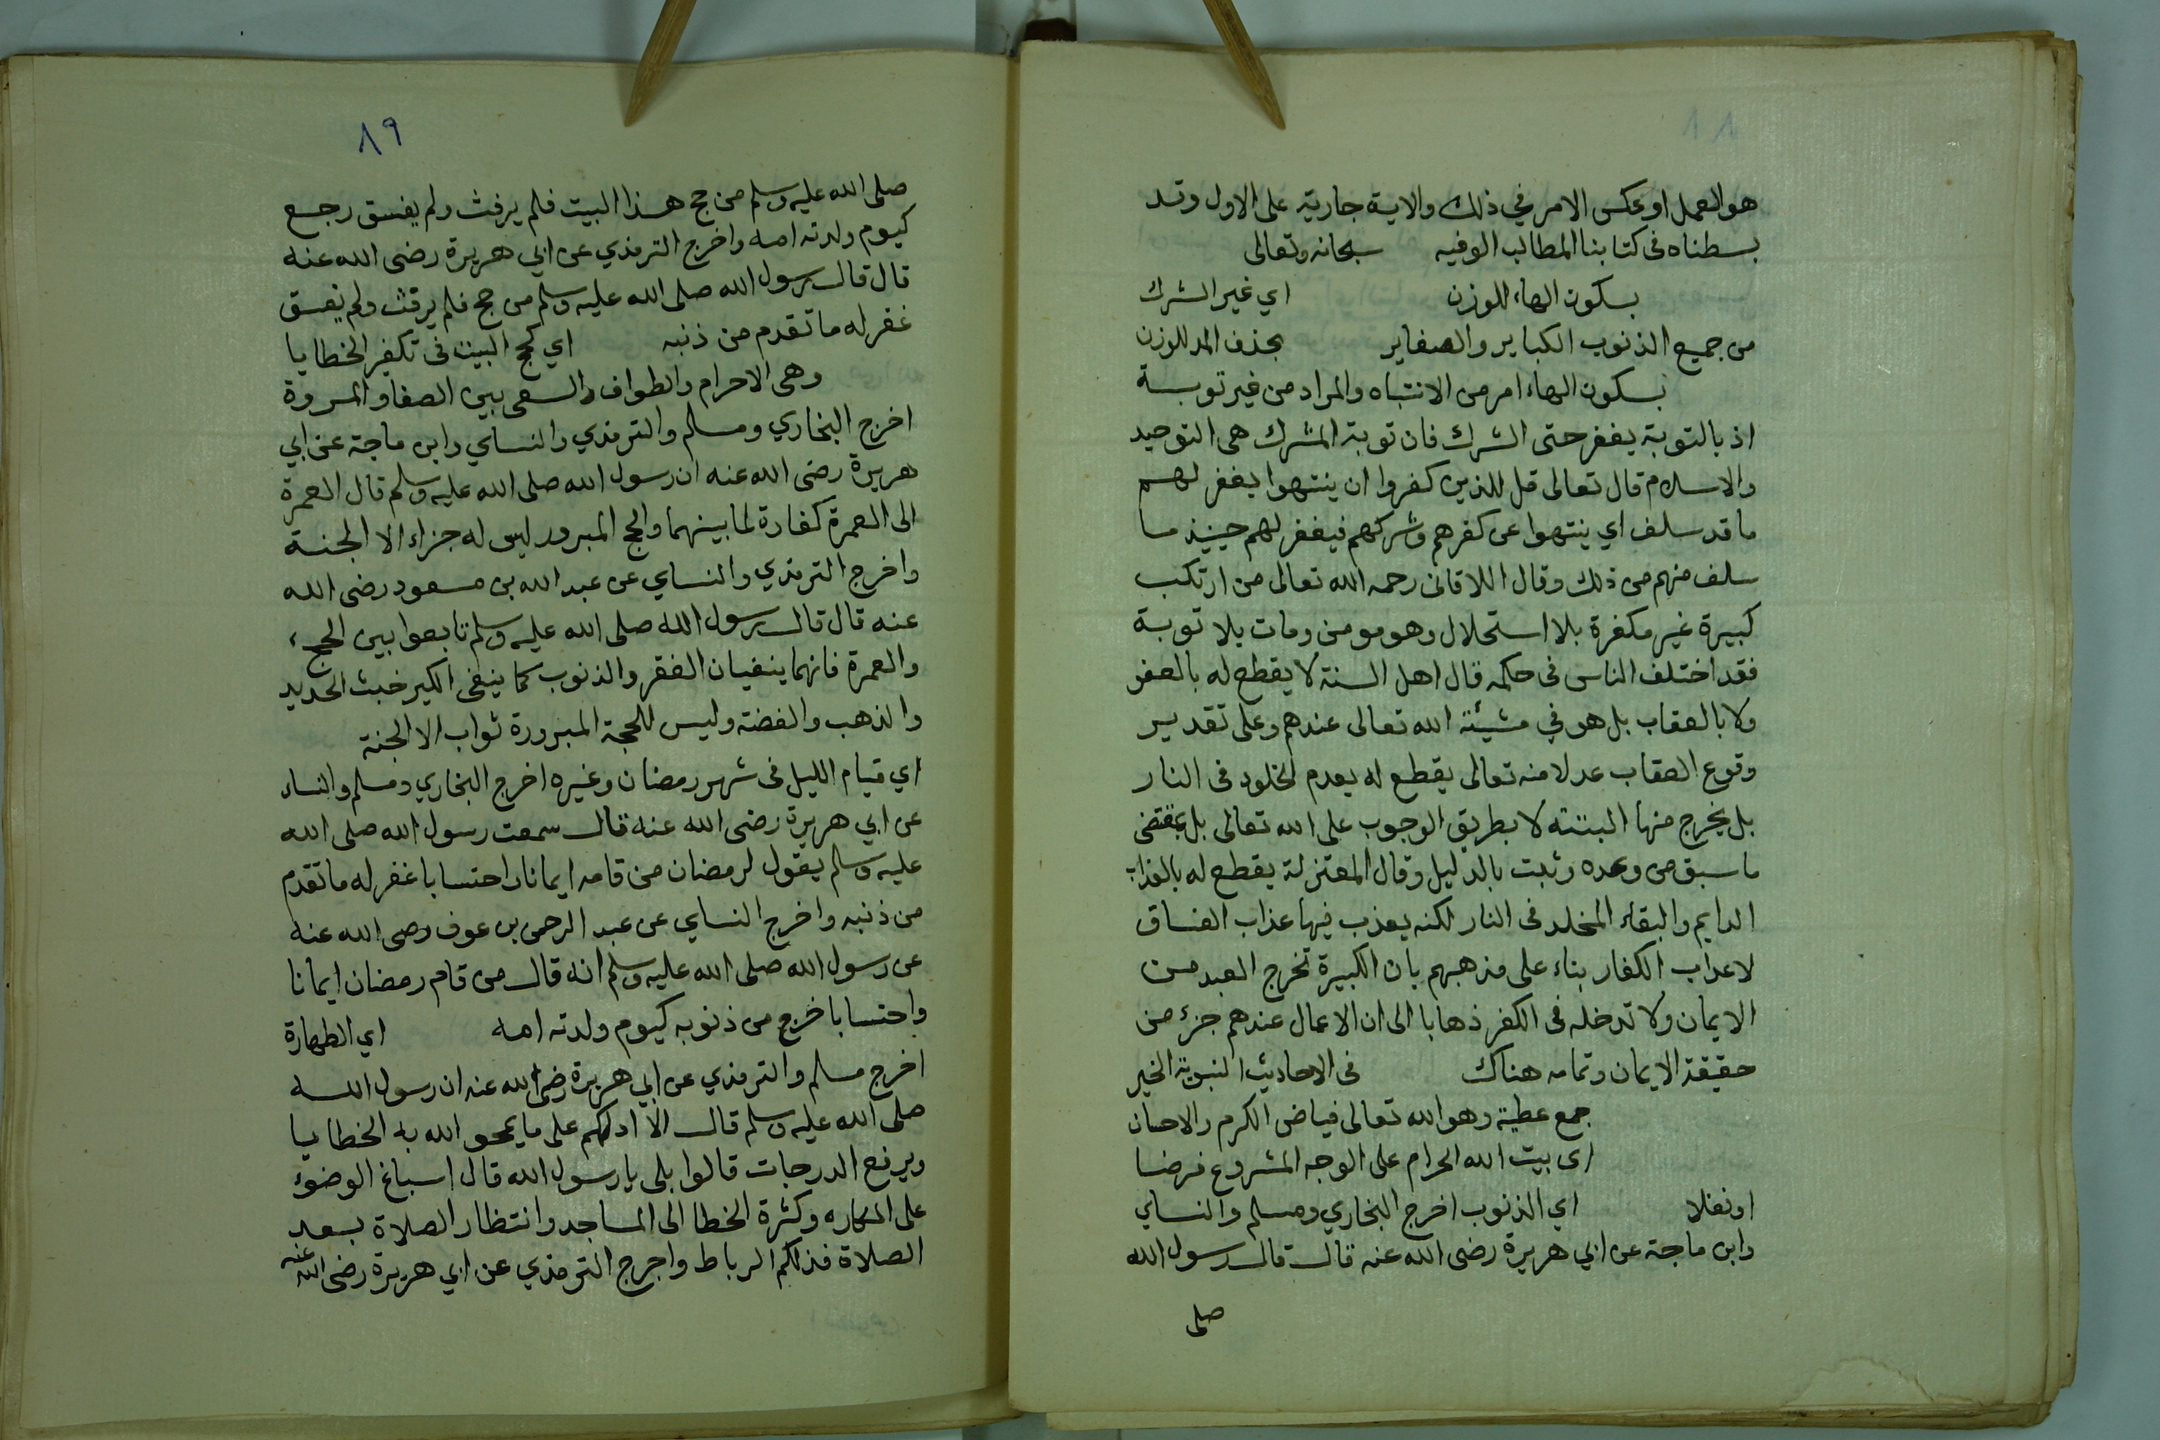 هو العمل او عكس الامر في ذلك والاية جارية على الاول وقد
بسطناه فى كتابنا المطالب الوفيه سبحانه وتعالى
بسكون الهاء للوزن اي غير الشرك
من جميع الذنوب الكباير والصغاير بحذف المد للوزن
بسكون الهاء امر من الانتباه والمراد من غير توبة
اذ بالتوبة يغفر حتى الشرك فان توبة المشرك هى التوحيد
والاسلام قال تعالى قل للذين كفروا ان ينتهوا يغفر لهم
ما قد سلف اي ينتهوا عن كفرهم وشركهم فيغفر لهم حينيذ ما
سلف منهم من ذلك وقال اللاقانى رحمه الله تعالى من ارتكب
كبيرة غير مكفرة بلا استحلال وهو مومن ومات بلا توبة
فقد اختلف الناس فى حكمه قال اهل السنة لا يقطع له بالعفو
ولا بالعقاب بل هو في مشيئة الله تعالى عندهم وعلى تقدير
وقوع العقاب عدلا منه تعالى يقطع له بعدم الخلود فى النار
بل يخرج منها البتته لا بطريق الوجوب على الله تعالى بل بمقتضى
ما سبق من وعده وثبت بالدليل وقال المعتزلة يقطع له بالعذاب
الدايم والبقاء المخلد فى النار لكنه يعذب فيها عذاب الفساق
لا عذاب الكفار بناء على مذهبهم بان الكبيرة تخرج العبد من
الايمان ولا تدخله فى الكفر ذهابا الى ان الاعمال عندهم جزؤ من
حقيقة الايمان وتمامه هناك فى الاحاديث النبوية الخير
جمع عطية وهو الله تعالى فياض الكرم والاحسان
اى بيت الله الحرام على الوجه المشروع فرضا
او نفلا اي الذنوب اخرج البخاري ومسلم والنساي
وابن ماجة عن ابي هريرة رضى الله عنه قال قال رسول الله
صلى
٨٩
صلى الله عليه وسلم من حج هذا البيت فلم يرفث ولم يفسق رجع
كيوم ولدته امه واخرج الترمذي عن ابي هريرة رضى الله عنه
قال قال رسول الله صلى الله عليه وسلم من حج فلم يرفث ولم يفسق
غفر له ما تقدم من ذنبه اي كحج البيت فى تكفير الخطايا
وهى الاحرام والطواف والسعى بين الصفا والمروة
اخرج البخاري ومسلم والترمذي والنساي وابن ماجة عن ابي
هريرة رضى الله عنه ان رسول الله صلى الله عليه وسلم قال العمرة
الى العمرة كفارة لما بينهما والحج المبرور ليس له جزاء الا الجنة
واخرج الترمذي والنساي عن عبد الله بن مسعود رضى الله
عنه قال قال رسول الله صلى الله عليه وسلم تابعوا بين الحج
والعمرة فانهما ينفيان الفقر والذنوب كما ينفى الكير خبث الحديد
والذهب والفضة وليس للحجة المبرورة ثواب الا الجنة
اي قيام الليل فى شهر رمضان وغيره اخرج البخاري ومسلم والنساء
عن ابي هريرة رضى الله عنه قال سمعت رسول الله صلى الله
عليه وسلم يقول لرمضان من قامه ايمانا واحتسابا غفر له ما تقدم
من ذنبه واخرج النساي عن عبد الرحمن بن عوف رضى الله عنه
عن رسول الله صلى الله عليه وسلم انه قال من قام رمضان ايمانا
واحتسابا خرج من ذنوبه كيوم ولدته امه اي الطهارة
اخرج مسلم والترمذي عن ابي هريرة رضى الله عنه ان رسول الله
صلى الله عليه وسلم قال الا ادلكم على ما يمحو الله به الخطايا
ويرفع الدرجات قالوا بلى يا رسول الله قال اسباغ الوضوء
على المكاره وكثرة الخطا الى المساجد وانتظار الصلاة بعد
الصلاة فذلكم الرباط واخرج الترمذي عن ابي هريرة رضى الله عنه